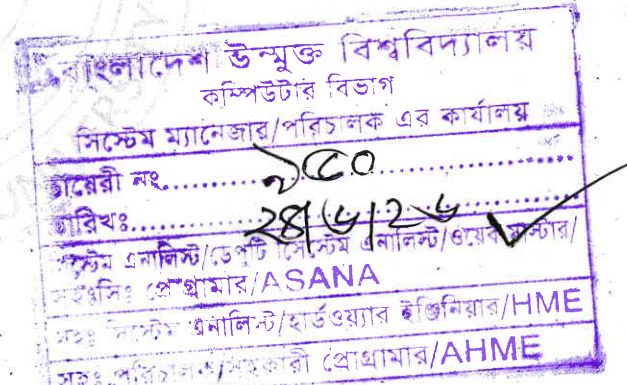 বাংলাদেশ উন্মুক্ত বিশ্ববিদ্যালয়
কম্পিউটার বিভাগ
সিস্টেম ম্যানেজার/পরিচালক এর কার্যালয়
ডায়েরী নং..............................
তারিখঃ.....২৪/৬/২৬
সিস্টেম এনালিস্ট/ডেপুটি সিস্টেম এনালিস্ট/ওয়েব মাস্টার/
সহঃসিঃ প্রোগ্রামার/ASANA
সহঃ সিস্টেম এনালিস্ট/হার্ডওয়্যার ইঞ্জিনিয়ার/HME
সহঃ পরিচালক/সহকারী প্রোগ্রামার/AHME